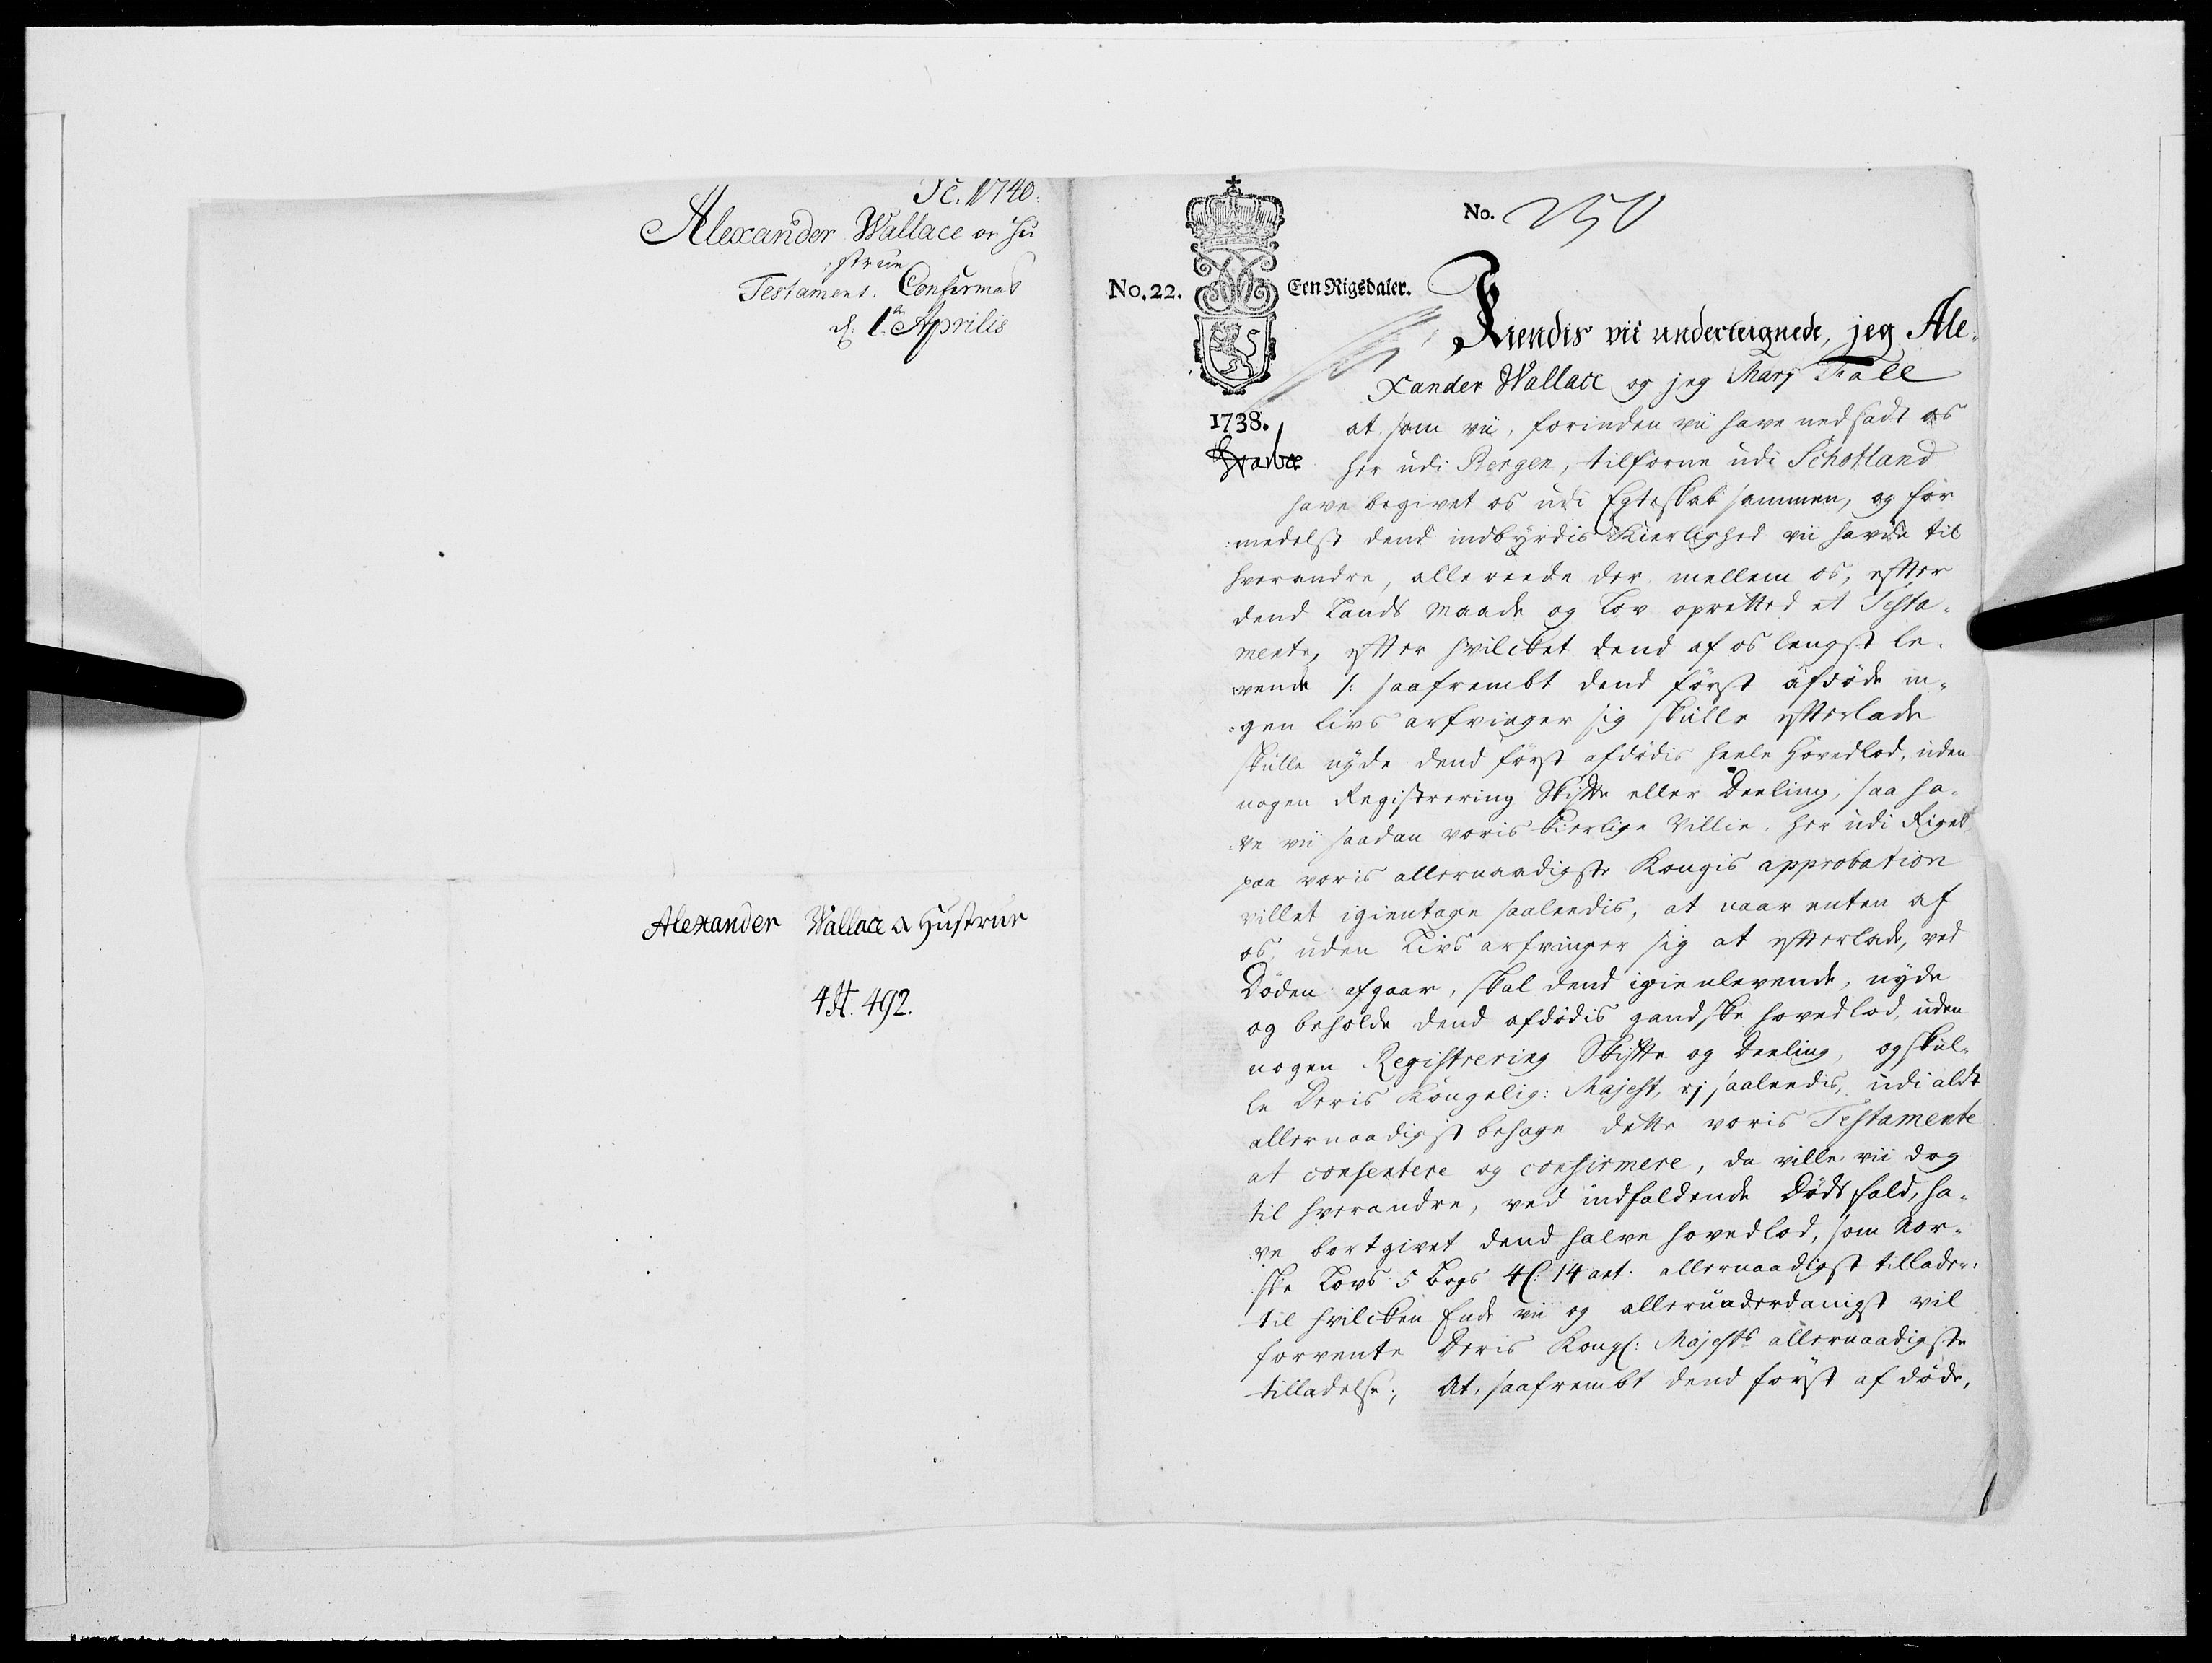 Sc. 1740.
Alexander Wallace og Hu
strue
Testament. Confirmat
d. 1.ten Aprilis
Alexander Wallace & Hustrue
4 H. 492.
No. 250
No. 22. Een Rigsdaler.
1738.
Kiendis vii underteignede, jeg Ale-
xander Wallace og jeg Mary
at som vii, forinden vii have nedsadt os
her udi Bergen, tilforne udi Schotland
have begivet os udi Egteskab sammen, og for
medelst dend indbyrdis Kierlighed vii havde til
hverandre, allereede der mellem os, efter
dend Lands Maade og Lov opretted et Testa-
mente, efter hvilcket dend af os lengst le-
vende /: saafrembt dend først afdøde in-
gen Livs arfvinger sig skulle efterlade
skulle nyde dend først afdødis heele Hovedlod, uden
nogen Registrering Skifte eller Deeling, saa ha-
ve vii saadan voris kierlige Villie, her udi Riget
paa voris allernaadigste Kongis approbation
villet igientage saaleedis, at naar enten af
os, uden Livs arfvinger sig at efterlade, ved
Døden afgaar, skal dend igienlevende, nyde
og beholde dend afdødis gandske hovedlod, uden
nogen Registrering Skifte og Deeling, og skul-
le Deris Kongelig: Majest, ej saaleedis, udi aldt
allernaadigst behage dette voris Testamente
at consentere og confirmere, da ville vii dog
til hverandre, ved indfaldende Dødsfald, ha-
ve bortgivet dend halve hovedlod, som Nor-
ske Lovs 5 Bogs 4 C: 14 art. allernaadigst tillader:
til hvilcken Ende vii og allerunderdanigst vil
forvente Deris Kongl: Majests allernaadigste
tilladelse; At, saafrembt dend først afdøde,